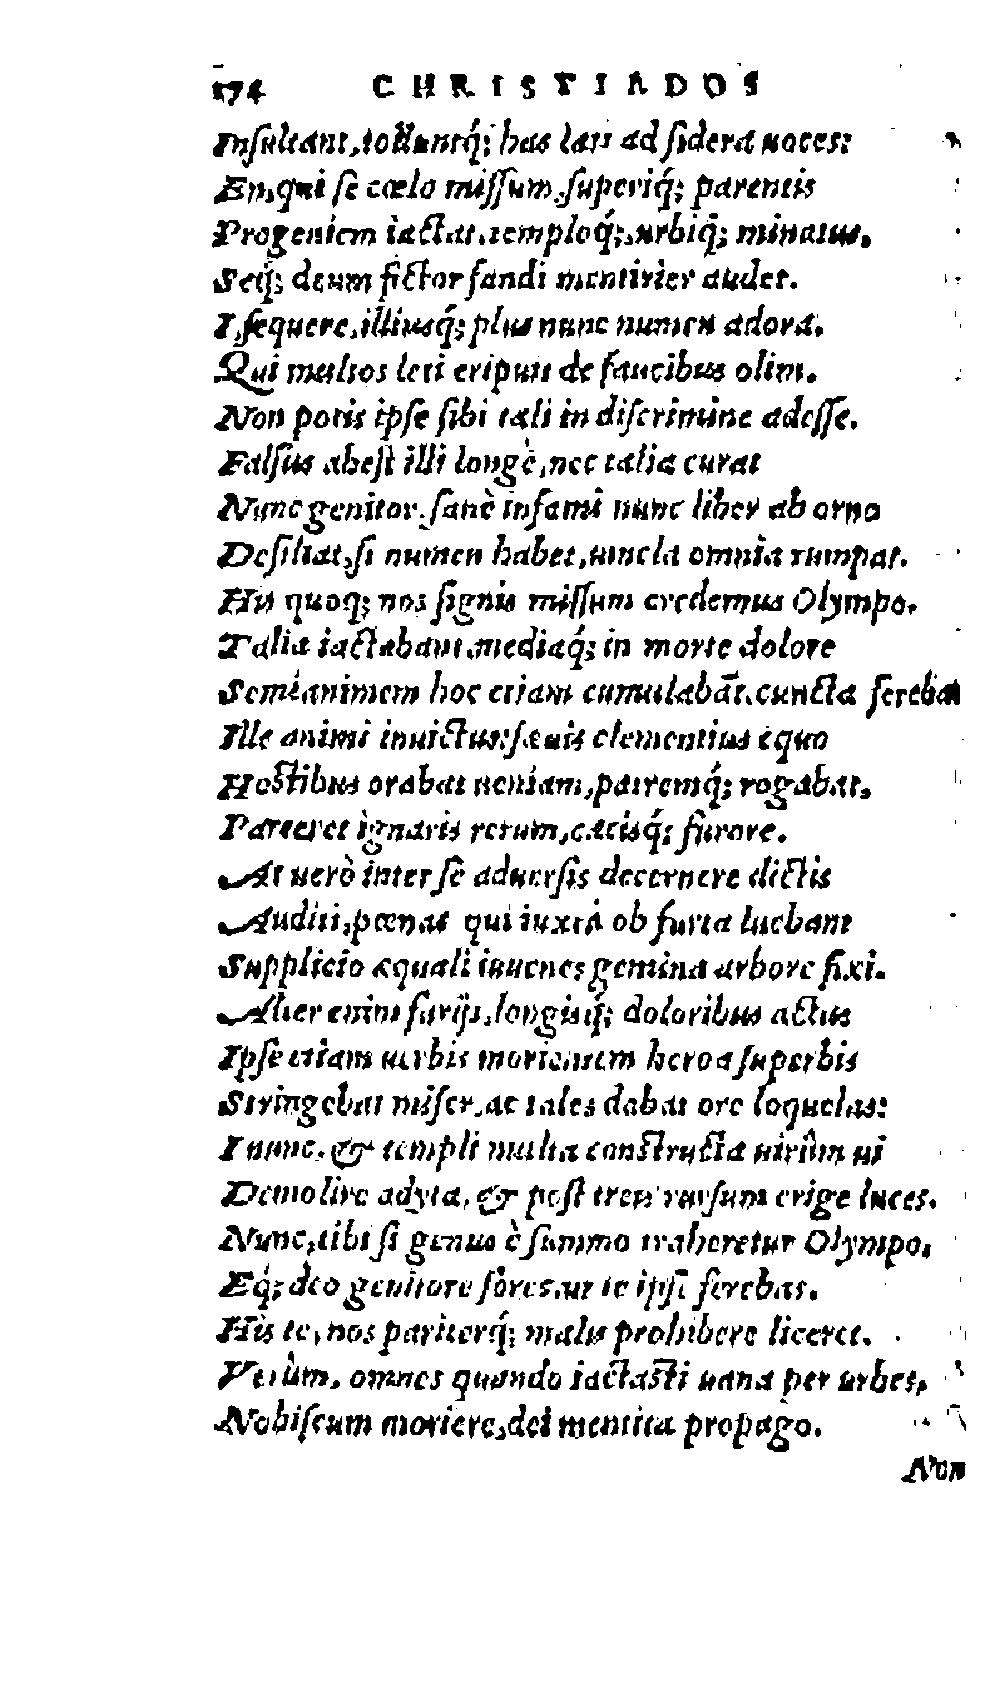 174 CHRISTIADOS
Inſultant, tolluntq́; has lati ad ſidera uoces:
En, qui ſe cœlo miſſum, ſuperiq́; parentis
Progeniem iactat, temploq́;, urbiq́; minatus,
Seq́; deum fictor fandi mentirier audet.
I, ſequere, illiusq́; plus nunc numen adora.
Qui multos leti eripuit de faucibus olim.
Non potis ipſe ſibi tali in diſcrimine adeſſe.
Falſus abeſt illi longè, nec talia curat
Nunc genitor. ſanè infami nunc liber ab orno
Deſiliat, ſi numen habet, uincla omnia rumpat.
His quoq; nos ſignis miſſum credemus Olympo.
Talia iactabant, mediaq́; in morte dolore
Semianimem hoc etiam cumulabāt. cuncta ferebat
Ille animi inuictus: ſæuis clementius equo
Hoſtibus orabat ueniam, patremq́; rogabat,
Parceret ignaris rerum, cæcisq́; furore.
At uerò inter ſe aduerſis decernere dictis
Auditi, pœnas qui iuxtà ob furta luebant
Supplicio æquali iuuenes gemina arbore fixi.
Alter enim furijs, longisq́; doloribus actus
Ipſe etiam uerbis morientem heroa ſuperbis
Stringebat miſer, ac tales dabat ore loquelas:
I nunc, & templi multa conſtructa uirûm ui
Demolire adyta, & poſt tres rurſum erige luces.
Nunc, tibi ſi genus è ſummo traheretur Olympo,
Eq́; deo genitore fores, ut te ipſe ferebas.
His te, nos pariterq́; malis prohibere liceret.
Verùm, omnes quando iactaſti uana per urbes,
Nobiſcum moriere, dei mentita propago.
Non